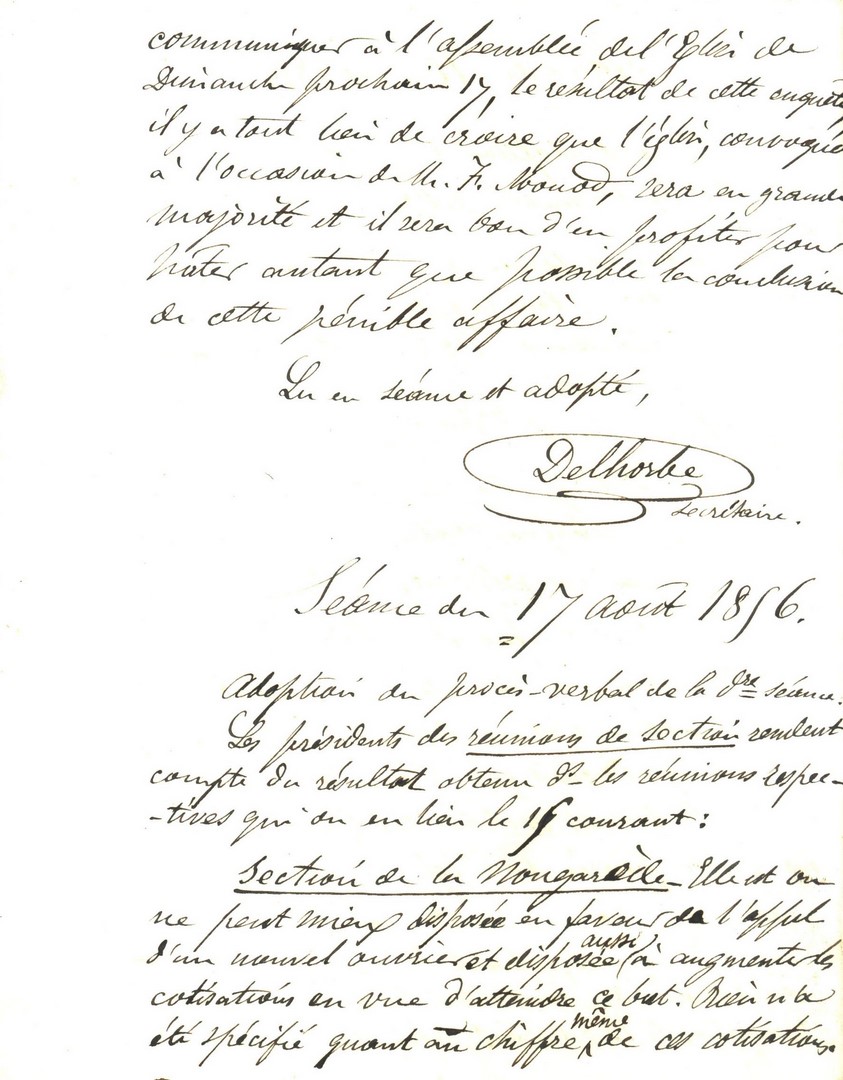 communiquer à l'assemblée de l'Eglise de
Dimanche prochain 17, le résultat de cette enquête,
il y a tout lieu de croire que l'église, convoquée
à l'occasion de M. F. Monod, sera en grande
majorité et il sera bon d'en profiter pour
hâter autant que possible la conclusion
de cette pénible affaire.
Lu en séance et adopté,
Delhorbe
secrétaire.
Séance du 17 août 1856.
Adoption du procès-verbal de la dre séance.
Les présidents des réunions de section rendent
compte du résultat obtenu ds les réunions respec-
-tives qui on eu lieu le 15 courant :
Section de la Nougarède - Elle est on
ne peut mieux disposée en faveur de l'appel
d'un nouvel ouvrier et disposée aussi à augmenter les
cotisations en vue d'atteindre ce but. Rien n'a
été spécifié quant au chiffre même de ces cotisations.